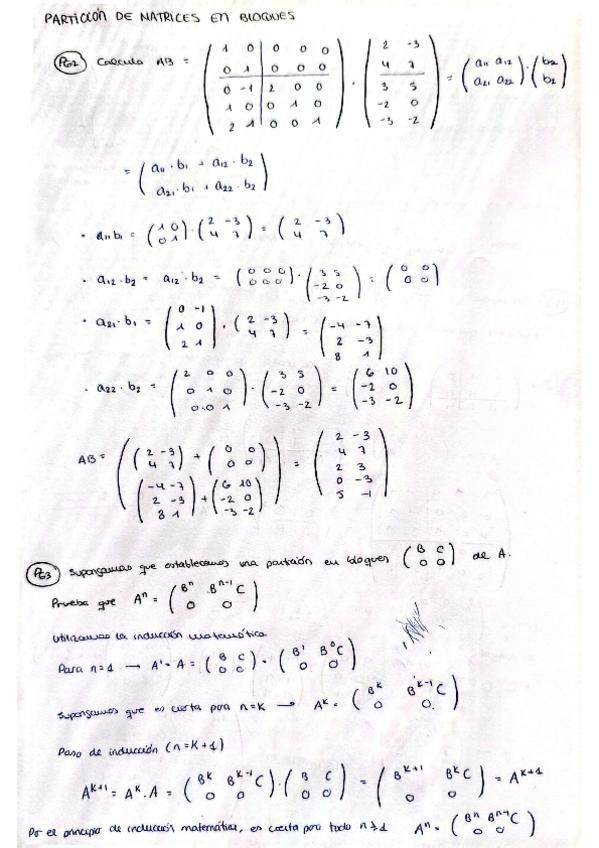 PARTICIÓN DE MATRICES EN BLOQUES
P62 Calcula AB = (1 0 | 0 0 0 ; 0 1 | 0 0 0 ; 0 -1 | 2 0 0 ; 1 0 | 0 1 0 ; 2 1 | 0 0 1) · (2 -3 ; 4 7 ; 3 5 ; -2 0 ; -3 -2) = (a11 a12 ; a21 a22) · (b2 ; b2)
= (a11 · b1 + a12 · b2 ; a21 · b1 + a22 · b2)
· a11 b1 = (1 0 ; 0 1) · (2 -3 ; 4 7) = (2 -3 ; 4 7)
· a12 · b2 = a12 · b2 = (0 0 0 ; 0 0 0) · (3 5 ; -2 0 ; -3 -2) = (0 0 ; 0 0)
· a21 · b1 = (0 -1 ; 1 0 ; 2 1) · (2 -3 ; 4 7) = (-4 -7 ; 2 -3 ; 8 1)
· a22 · b2 = (2 0 0 ; 0 1 0 ; 0 0 1) · (3 5 ; -2 0 ; -3 -2) = (6 10 ; -2 0 ; -3 -2)
AB = ((2 -3 ; 4 7) + (0 0 ; 0 0) ; (-4 -7 ; 2 -3 ; 8 1) + (6 10 ; -2 0 ; -3 -2)) = (2 -3 ; 4 7 ; 2 3 ; 0 -3 ; 5 -1)
P63 Supongamos que establecemos una partición en bloques (B C ; 0 0) de A.
Prueba que A^n = (B^n B^n-1 C ; 0 0)
Utilizamos la inducción matemática
Para n=1 → A^1 = A = (B C ; 0 0) = (B^1 B^0 C ; 0 0)
Supongamos que es cierta para n=K → A^K = (B^K B^K-1 C ; 0 0)
Paso de inducción (n=K+1)
A^K+1 = A^K · A = (B^K B^K-1 C ; 0 0) · (B C ; 0 0) = (B^K+1 B^K C ; 0 0) = A^K+1
Por el principio de inducción matemática, es cierta para todo n≥1 A^n = (B^n B^n-1 C ; 0 0)